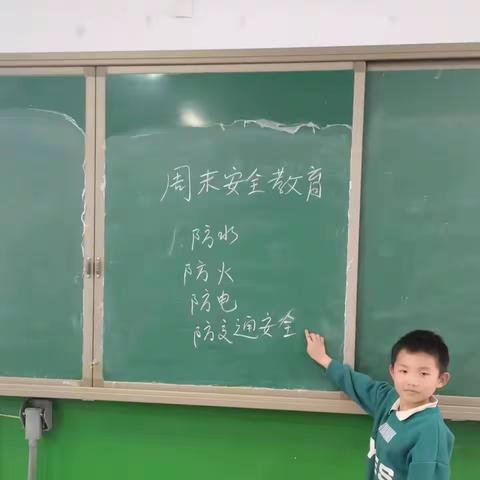 周末安全教育
1.防水
防火
防电
防交通安全